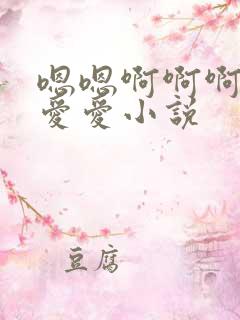 嗯嗯啊啊啊
愛愛小説
豆腐